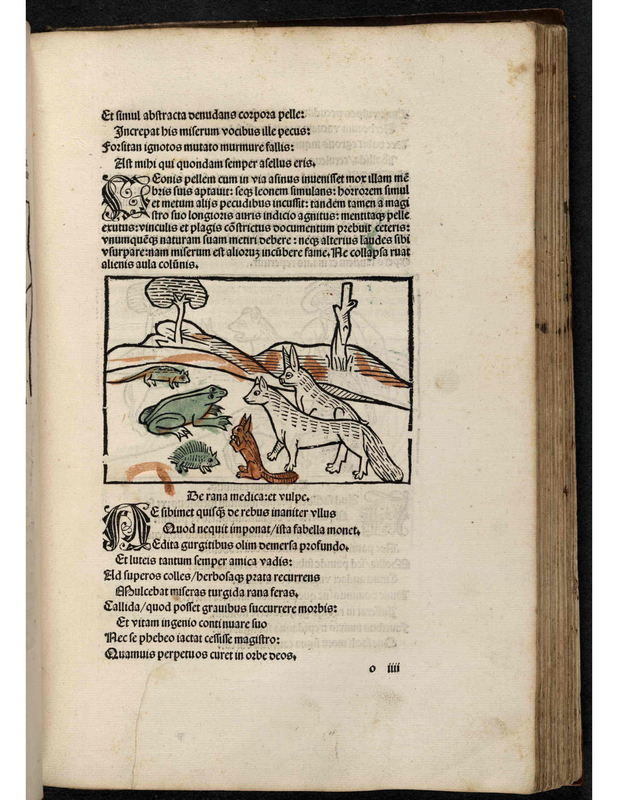 Et simul abstracta denudans corpora pelle:
Increpat his miserum vocibus ille pecus:
Forsitan ignotos mutato murmure fallis:
Ast mihi qui quondam semper asellus eris.
LEonis pellem cum in via asinus inuenisset mor illam mē
bris suis aptauit: seqꝫ leonem simulans: horrorem simul
et metum alijs pecudibus incussit: tandem tamen a magi
stro suo longioris auris indicio agnitus: mentitaqꝫ pelle
exutus: vinculis et plagis cōstrictus documentum prebuit ceteris:
vnumquēqꝫ naturam suam metiri debere: neqꝫ alterius laudes sibi
vsurpare: nam miserum est alioruꝫ incūbere fame. Ne collapsa ruat
alienis aula colūnis.
De rana medica: et vulpe.
NE sibimet quisqꝫ de rebus inaniter vllus
Quod nequit imponat/ista fabella monet.
Edita gurgitibus olim demersa profundo.
Et luteis tantum semper amica vadis:
Ad superos colles/herbosaqꝫ prata recurrens
Mulcebat miseras turgida rana feras.
Callida/quod posset grauibus succurrere morbis:
Et vitam ingenio conti nuare suo
Nec se phebeo iactat cessisse magistro:
Quamuis perpetuos curet in orbe deos.
o iiii